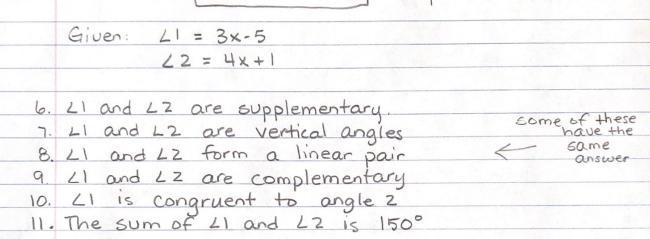 Given: ∠1 = 3x-5
∠2 = 4x+1
6. ∠1 and ∠2 are supplementary.
7. ∠1 and ∠2 are vertical angles
8. ∠1 and ∠2 form a linear pair
9. ∠1 and ∠2 are complementary
10. ∠1 is congruent to angle 2
11. The sum of ∠1 and ∠2 is 150°
some of these
have the
same
answer